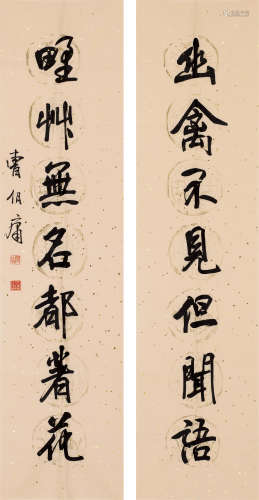 幽禽不見但聞語
野艸無名都著花
曹伯庸